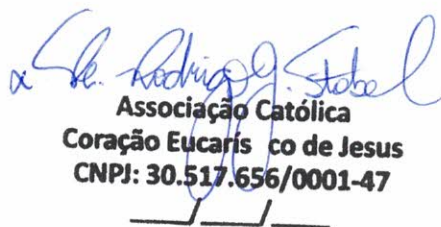 Pe. Rodrigo J. Stobel
Associação Católica
Coração Eucarís co de Jesus
CNPJ: 30.517.656/0001-47
____/____/____